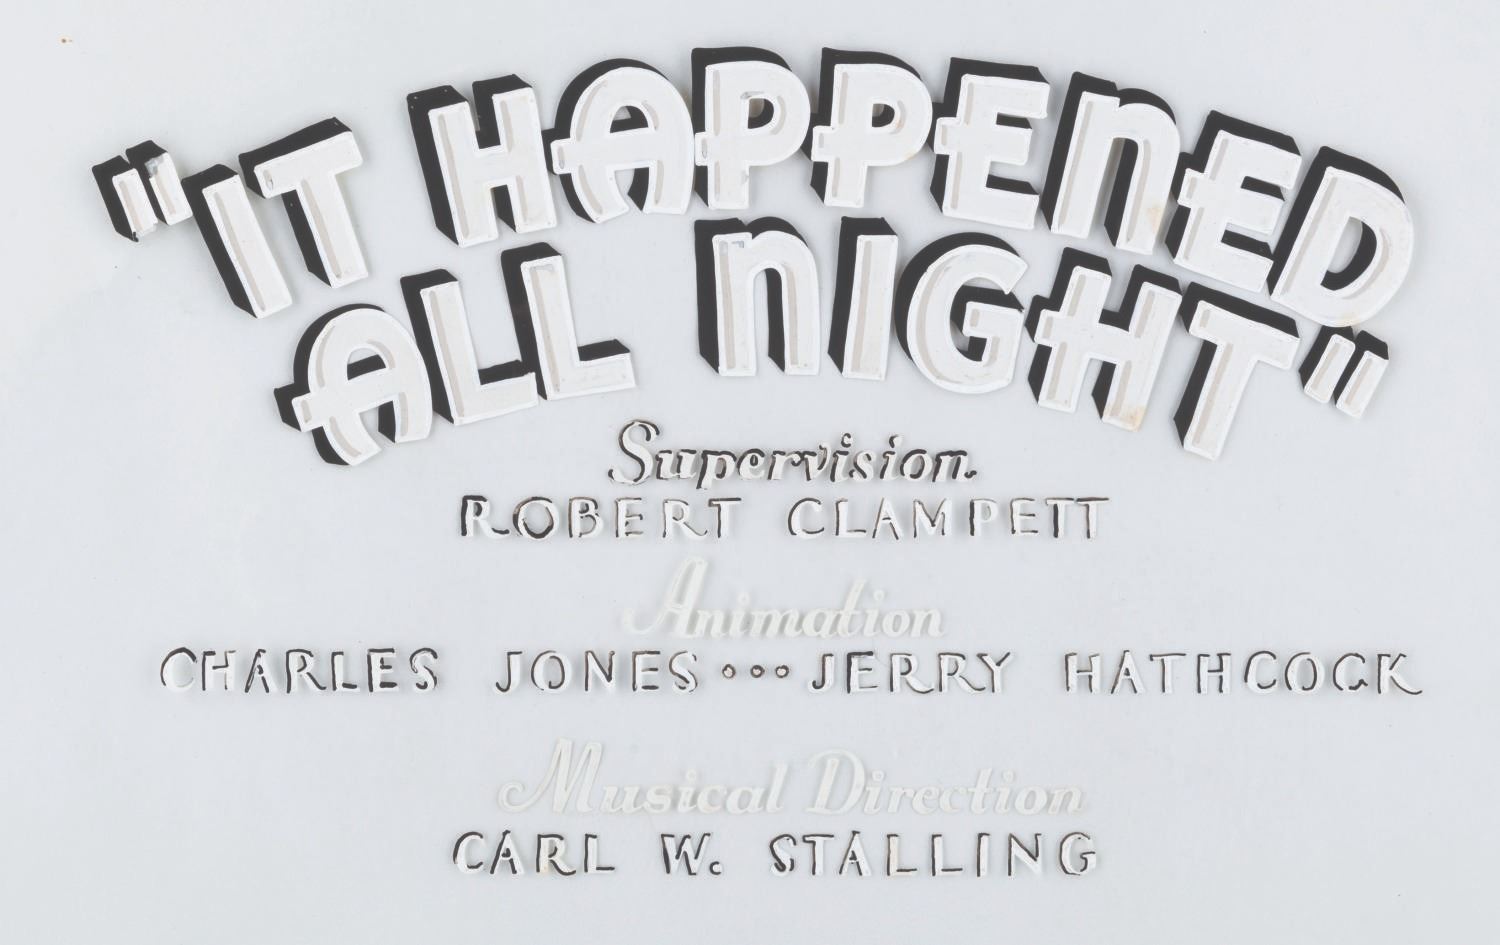 "IT HAPPENED
ALL NIGHT"
Supervision
ROBERT CLAMPETT
Animation
CHARLES JONES...JERRY HATHCOCK
Musical Direction
CARL W. STALLING